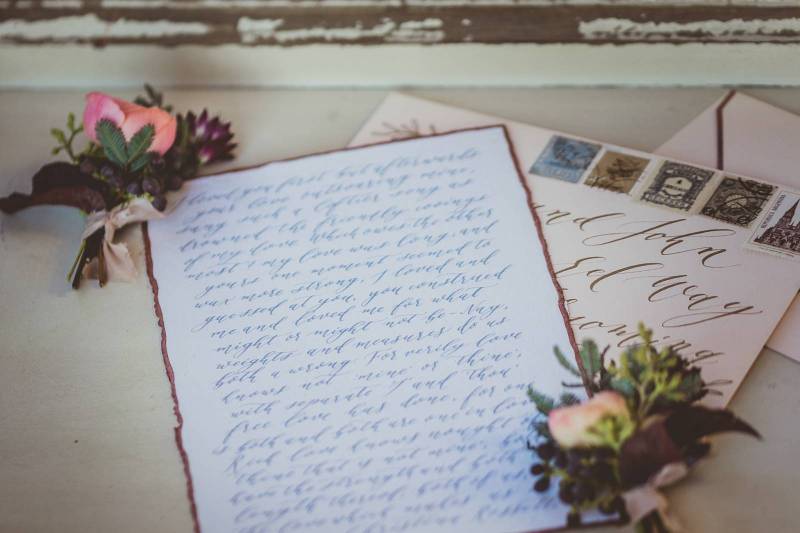 loved you first but afterwards
your love outsoaring mine,
sang such a loftier song as
drowned the friendly cooings
of my dove. Which owes the other
most? My love was long, and
yours one moment seemed to
wax more strong, I loved and
guessed at you, you construed
me and loved me for what
might or might not be - Nay,
weights and measures do us
both a wrong. For verily love
knows not 'mine' or 'thine;'
with separate 'I' and 'thou'
free love has done, for one
is both and both are one in love
Rich love knows nought of
thine that is not mine;
have the strength and both
length thereof, both of us
love which makes us
Christina Rossetti
nd John
Way